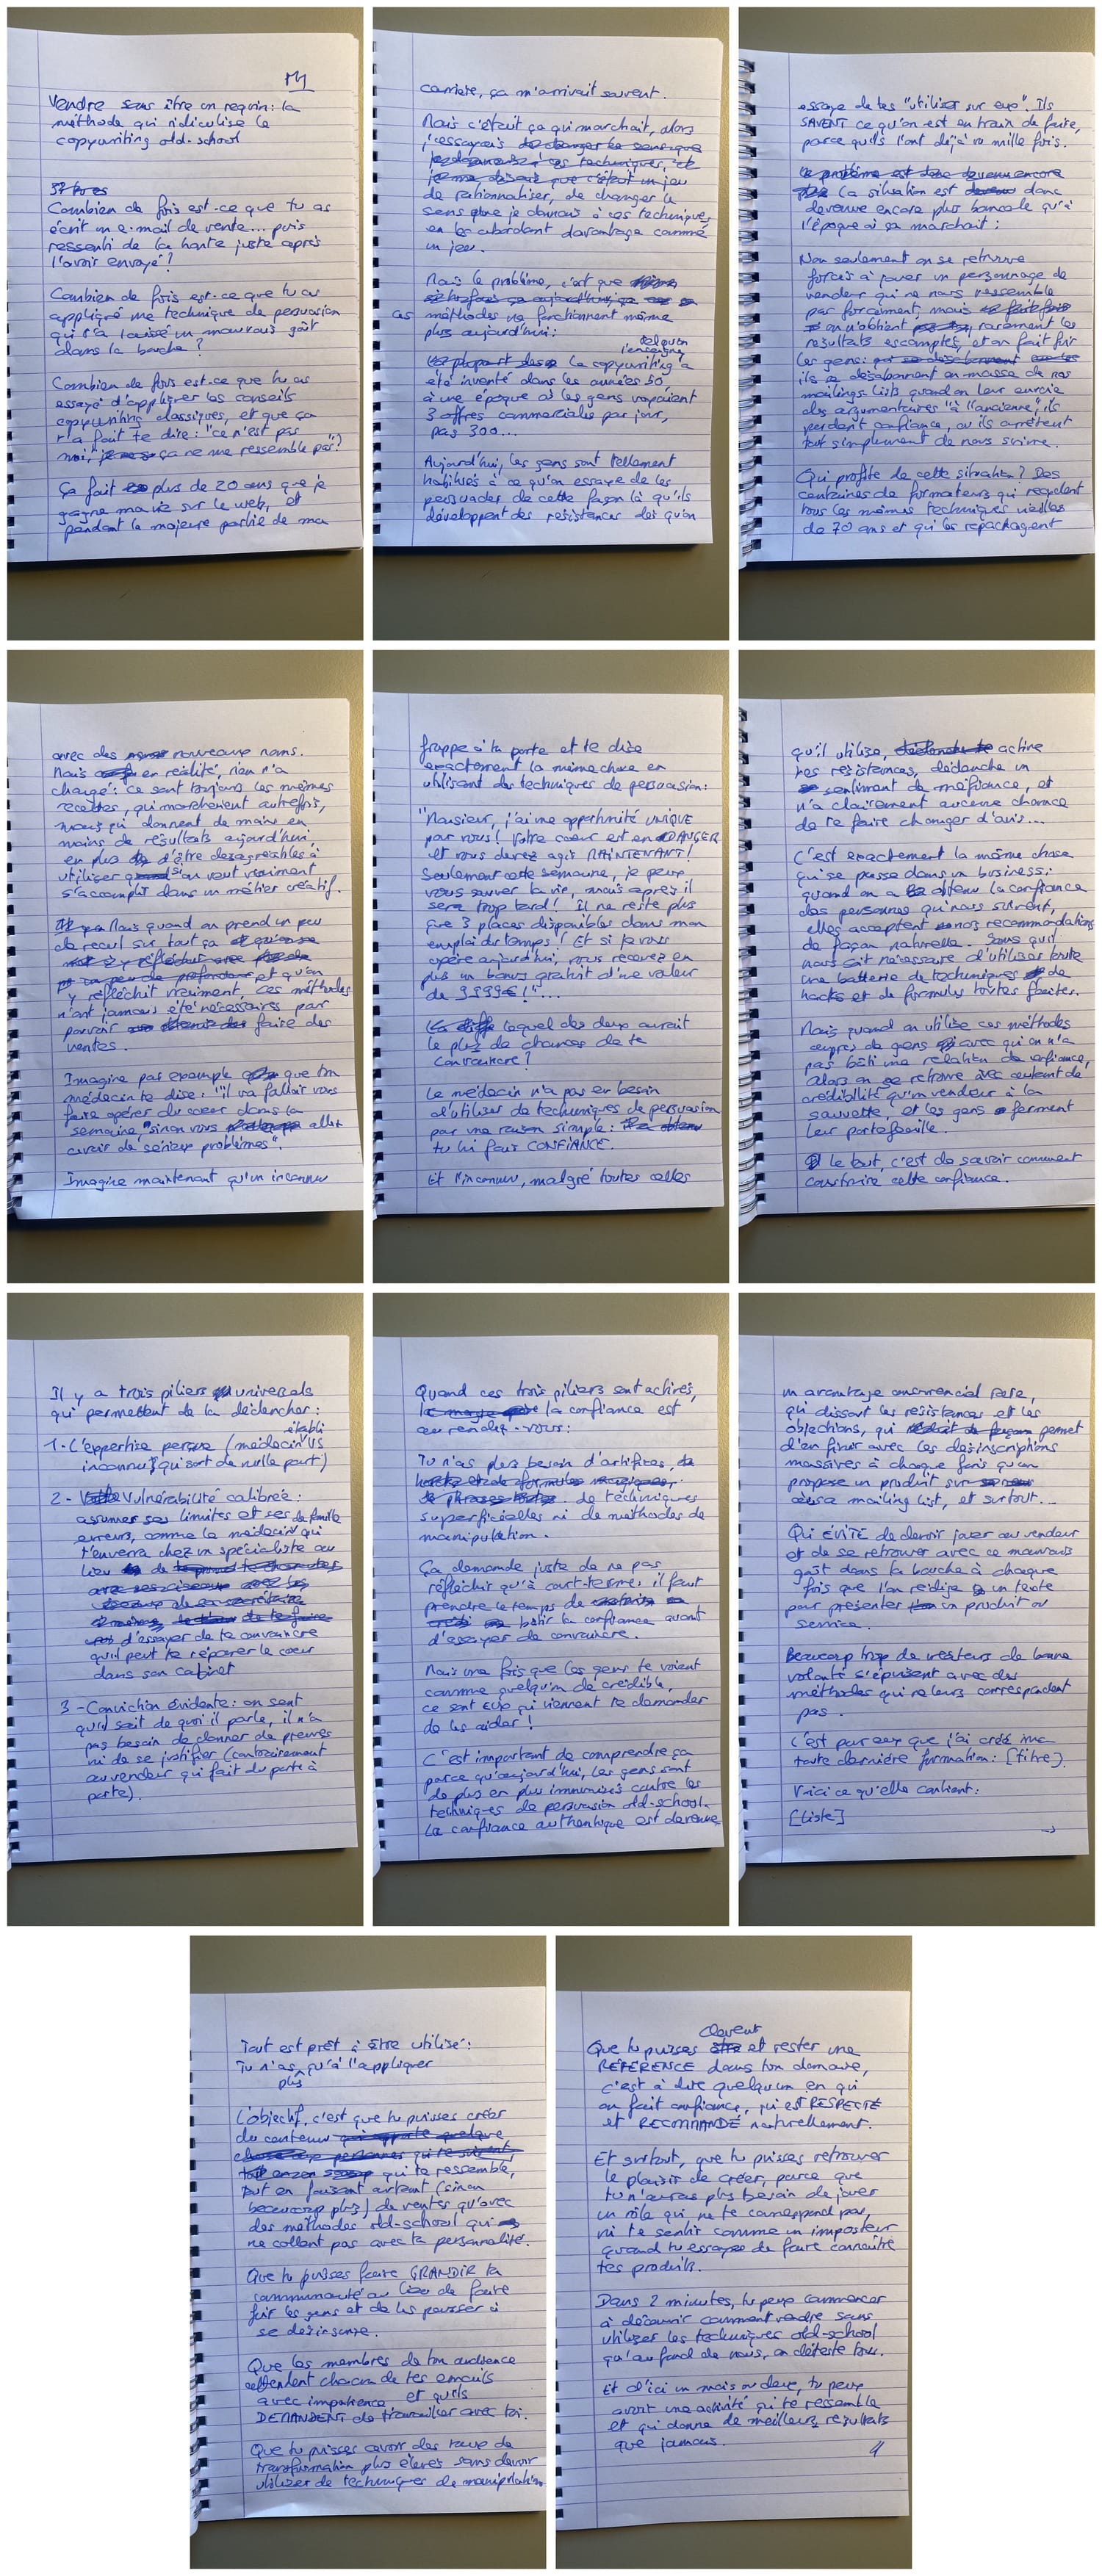 M
Vendre sans être un requin : la
méthode qui ridiculise le
copywriting old-school
Combien de fois est-ce que tu as
écrit un e-mail de vente... puis
ressenti de la honte juste après
l'avoir envoyé ?
Combien de fois est-ce que tu as
appliqué une technique de persuasion
qui t'a laissé un mauvais goût
dans la bouche ?
Combien de fois est-ce que tu as
essayé d'appliquer les conseils
copywriting classiques, et que ça
t'a fait te dire : "ce n'est pas
moi, ça ne me ressemble pas" ?
Ça fait plus de 20 ans que je
gagne ma vie sur le web, et
pendant la majeure partie de ma
carrière, ça m'arrivait souvent.
Mais c'était ça qui marchait, alors
j'essayais de changer le sens que
je donnais à ces techniques, et
je me disais que c'était un jeu
de rationnaliser, de changer le
sens que je donnais à ces techniques
en les abordant davantage comme
un jeu.
Mais le problème, c'est que
ces méthodes ne fonctionnent même
plus aujourd'hui :
tel qu'on
l'enseigne
La plupart des le copywriting a
été inventé dans les années 50,
à une époque où les gens voyaient
3 offres commerciales par jour,
pas 300...
Aujourd'hui, les gens sont tellement
habitués à ce qu'on essaye de les
persuader de cette façon là qu'ils
développent des résistances dès qu'on
essaye de les "utiliser sur eux". Ils
SAVENT ce qu'on est en train de faire,
parce qu'ils l'ont déjà vu mille fois.
Le problème est donc devenu encore
La situation est donc
devenue encore plus bancale qu'à
l'époque où ça marchait :
Non seulement on se retrouve
forcés à jouer un personnage de
vendeur qui ne nous ressemble
pas forcément, mais
on n'obtient rarement les
résultats escomptés, et on fait fuir
les gens :
ils se désabonnent en masse de nos
mailings lists quand on leur envoie
des argumentaires "à l'ancienne", ils
perdent confiance, ou ils arrêtent
tout simplement de nous suivre.
Qui profite de cette situation ? Des
centaines de formateurs qui recyclent
tous les mêmes techniques vieilles
de 70 ans et qui les repackagent
avec des nouveaux noms.
Mais en réalité, rien n'a
changé : ce sont toujours les mêmes
recettes, qui marchaient autrefois,
mais qui donnent de moins en
moins de résultats aujourd'hui
en plus d'être désagréables à
utiliser si on veut vraiment
s'accomplir dans un métier créatif.
Mais quand on prend un peu
de recul sur tout ça
et qu'on
y réfléchit vraiment, ces méthodes
n'ont jamais été nécessaires pour
pouvoir faire des
ventes.
Imagine par exemple que ton
médecin te dise : "il va falloir vous
faire opérer du cœur dans la
semaine sinon vous allez
avoir de sérieux problèmes".
Imagine maintenant qu'un inconnu
frappe à ta porte et te dise
exactement la même chose en
utilisant des techniques de persuasion :
"Monsieur, j'ai une opportunité UNIQUE
pour vous ! Votre cœur est en DANGER
et vous devez agir MAINTENANT !
Seulement cette semaine, je peux
vous sauver la vie, mais après il
sera trop tard ! Il ne reste plus
que 3 places disponibles dans mon
emploi du temps ! Et si je vous
opère aujourd'hui, vous recevez en
plus un bonus gratuit d'une valeur
de 9999€ !"...
Lequel des deux aurait
le plus de chances de te
convaincre ?
Le médecin n'a pas eu besoin
d'utiliser de techniques de persuasion
par une raison simple :
tu lui fais CONFIANCE.
Et l'inconnu, malgré toutes celles
qu'il utilise, active
tes résistances, déclenche un
sentiment de méfiance, et
n'a clairement aucune chance
de te faire changer d'avis...
C'est exactement la même chose
qui se passe dans un business :
quand on a obtenu la confiance
des personnes qui nous suivent,
elles acceptent nos recommandations
de façon naturelle. Sans qu'il
nous soit nécessaire d'utiliser toute
une batterie de techniques, de
hacks et de formules toutes faites.
Mais quand on utilise ces méthodes
auprès de gens avec qui on n'a
pas bâti une relation de confiance,
alors on se retrouve avec autant de
crédibilité qu'un vendeur à la
sauvette, et les gens ferment
leur portefeuille.
le tout, c'est de savoir comment
construire cette confiance.
Il y a trois piliers universels
qui permettent de la déclencher :
établi
1 - L'expertise perçue (médecin VS
inconnu qui sort de nulle part)
2 - Vulnérabilité calibrée :
assumer ses limites et ses
erreurs, comme le médecin de famille qui
t'enverra chez un spécialiste au
lieu
d'essayer de te convaincre
qu'il peut te réparer le cœur
dans son cabinet
3 - Conviction évidente : on sent
qu'il sait de quoi il parle, il n'a
pas besoin de donner de preuves
ni de se justifier (contrairement
au vendeur qui fait du porte à
porte).
Quand ces trois piliers sont activés,
la confiance est
au rendez-vous :
Tu n'as plus besoin d'artifices, de
hacks et de formules magiques,
de techniques
superficielles ni de méthodes de
manipulation.
Ça demande juste de ne pas
réfléchir qu'à court-terme : il faut
prendre le temps de
bâtir la confiance avant
d'essayer de convaincre.
Mais une fois que les gens te voient
comme quelqu'un de crédible,
ce sont EUX qui viennent te demander
de les aider !
C'est important de comprendre ça
parce qu'aujourd'hui, les gens sont
de plus en plus immunisés contre les
techniques de persuasion old-school.
La confiance authentique est devenue
un avantage concurrenciel rare,
qui dissout les résistances et les
objections, qui permet
d'en finir avec les désinscriptions
massives à chaque fois qu'on
propose un produit sur
mailing list, et surtout...
Qui ÉVITE de devoir jouer au vendeur
et de se retrouver avec ce mauvais
goût dans la bouche à chaque
fois que l'on rédige un texte
pour présenter un produit ou
service.
Beaucoup trop de créateurs de bonne
volonté s'épuisent avec des
méthodes qui ne leurs correspondent
pas.
C'est pour eux que j'ai créé ma
toute dernière formation : [titre].
Voici ce qu'elle contient :
[Liste]
→
Tout est prêt à être utilisé :
Tu n'as plus qu'à l'appliquer
L'objectif, c'est que tu puisses créer
du contenu qui apporte quelque
chose aux personnes qui te suivent,
qui te ressemble,
tout en faisant autant (sinon
beaucoup plus) de ventes qu'avec
des méthodes old-school qui
ne collent pas avec ta personnalité.
Que tu puisses faire GRANDIR ta
communauté au lieu de faire
fuir les gens et de les pousser à
se désinscrire.
Que les membres de ton audience
attendent chacun de tes emails
avec impatience et qu'ils
DEMANDENT de travailler avec toi.
Que tu puisses avoir des taux de
transformation plus élevés sans devoir
utiliser de techniques de manipulation.
Que tu puisses devenir et rester une
RÉFÉRENCE dans ton domaine,
c'est à dire quelqu'un en qui
on fait confiance, qui est RESPECTÉ
et RECOMMANDÉ naturellement.
Et surtout, que tu puisses retrouver
le plaisir de créer, parce que
tu n'auras plus besoin de jouer
un rôle qui ne te correspond pas,
ni te sentir comme un imposteur
quand tu essayes de faire connaître
tes produits.
Dans 2 minutes, tu peux commencer
à découvrir comment vendre sans
utiliser les techniques old-school
qu'au fond de nous, on déteste tous.
Et d'ici un mois ou deux, tu peux
avoir une activité qui te ressemble
et qui donne de meilleurs résultats
que jamais.